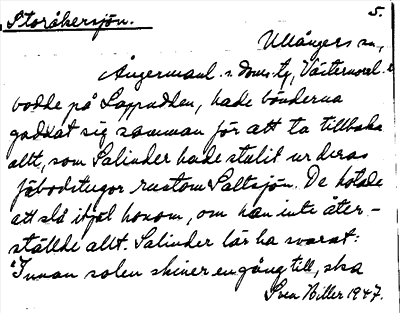 Storåkersjön.
5.
Ullångers sn,
Ångermanl. s. doms. tg, Västernorrl. l.
bodde på Lappudden, hade bönderna
gaddat sig samman för att ta tillbaka
allt, som Salinder hade stulit ur deras
fäbodstugor runtom Saltsjön. De hotade
att slå ihjäl honom, om han inte åter-
ställde allt. Salinder lär ha svarat:
"Innan solen skiner en gång till, ska
Svea Biller 1947.